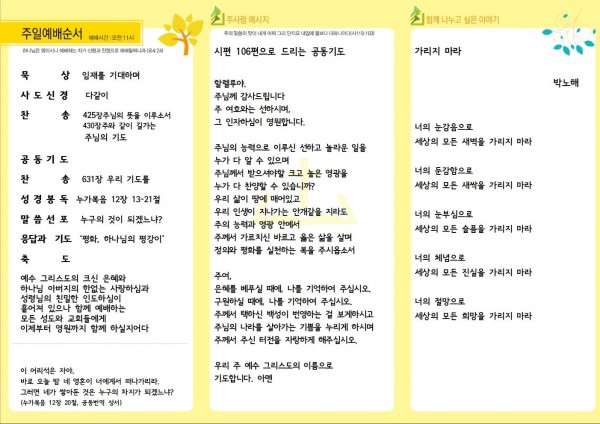 주일예배순서 예배시간 : 오전11시
하나님은 영이시니 예배하는 자가 신령과 진정으로 예배할찌니라 (요4:24)
묵 상 임재를 기대하며
사 도 신 경 다같이
찬 송 425장주님의 뜻을 이루소서
430장주와 같이 길가는
주님의 기도
공 동 기 도
찬 송 631장 우리 기도를
성 경 봉 독 누가복음 12장 13-21절
말 씀 선 포 누구의 것이 되겠느냐?
응답과 기도 '평화, 하나님의 평강이'
축 도
예수 그리스도의 크신 은혜와
하나님 아버지의 한없는 사랑하심과
성령님의 친밀한 인도하심이
흩어져 있으나 함께 예배하는
모든 성도와 교회들에게
이제부터 영원까지 함께 하실지어다
이 어리석은 자야,
바로 오늘 밤 네 영혼이 너에게서 떠나가리라.
그러면 네가 쌓아둔 것은 누구의 차지가 되겠느냐?
(누가복음 12장 20절, 공동번역 성서)
주사랑 메시지
주의 말씀의 맛이 내게 어찌 그리 단지요 내입에 꿀보다 더하니이다(시119:103)
시편 106편으로 드리는 공동기도
할렐루야.
주님께 감사드립니다
주 여호와는 선하시며,
그 인자하심이 영원합니다.
주님의 능력으로 이루신 선하고 놀라운 일을
누가 다 알 수 있으며
주님께서 받으셔야할 크고 높은 영광을
누가 다 찬양할 수 있습니까?
우리 삶이 땅에 매어있고
우리 인생이 지나가는 안개같을 지라도
주의 능력과 영광 안에서
주께서 가르치신 바르고 옳은 삶을 살며
정의와 평화를 실천하는 복을 주시옵소서
주여,
은혜를 베푸실 때에, 나를 기억하여 주십시오.
구원하실 때에, 나를 기억하여 주십시오.
주께서 택하신 백성이 번영하는 걸 보게하시고
주님의 나라를 살아가는 기쁨을 누리게 하시며
주께서 주신 터전을 자랑하게 해주십시오.
우리 주 예수 그리스도의 이름으로
기도합니다. 아멘
함께 나누고 싶은 이야기
가리지 마라
박노해
너의 눈감음으로
세상의 모든 새벽을 가리지 마라
너의 둔감함으로
세상의 모든 새싹을 가리지 마라
너의 눈부심으로
세상의 모든 슬픔을 가리지 마라
너의 체념으로
세상의 모든 진실을 가리지 마라
너의 절망으로
세상의 모든 희망을 가리지 마라